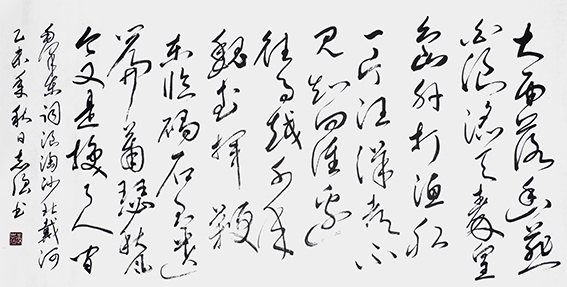 大雨落幽燕
白浪滔天秦皇
岛外打渔船
一片汪洋都不
见知向谁边
往事越千年
魏武揮鞭
东临碣石有遗
篇蕭瑟秋风
今又是换了人间
毛泽东词浪淘沙北戴河
乙未年秋日志书